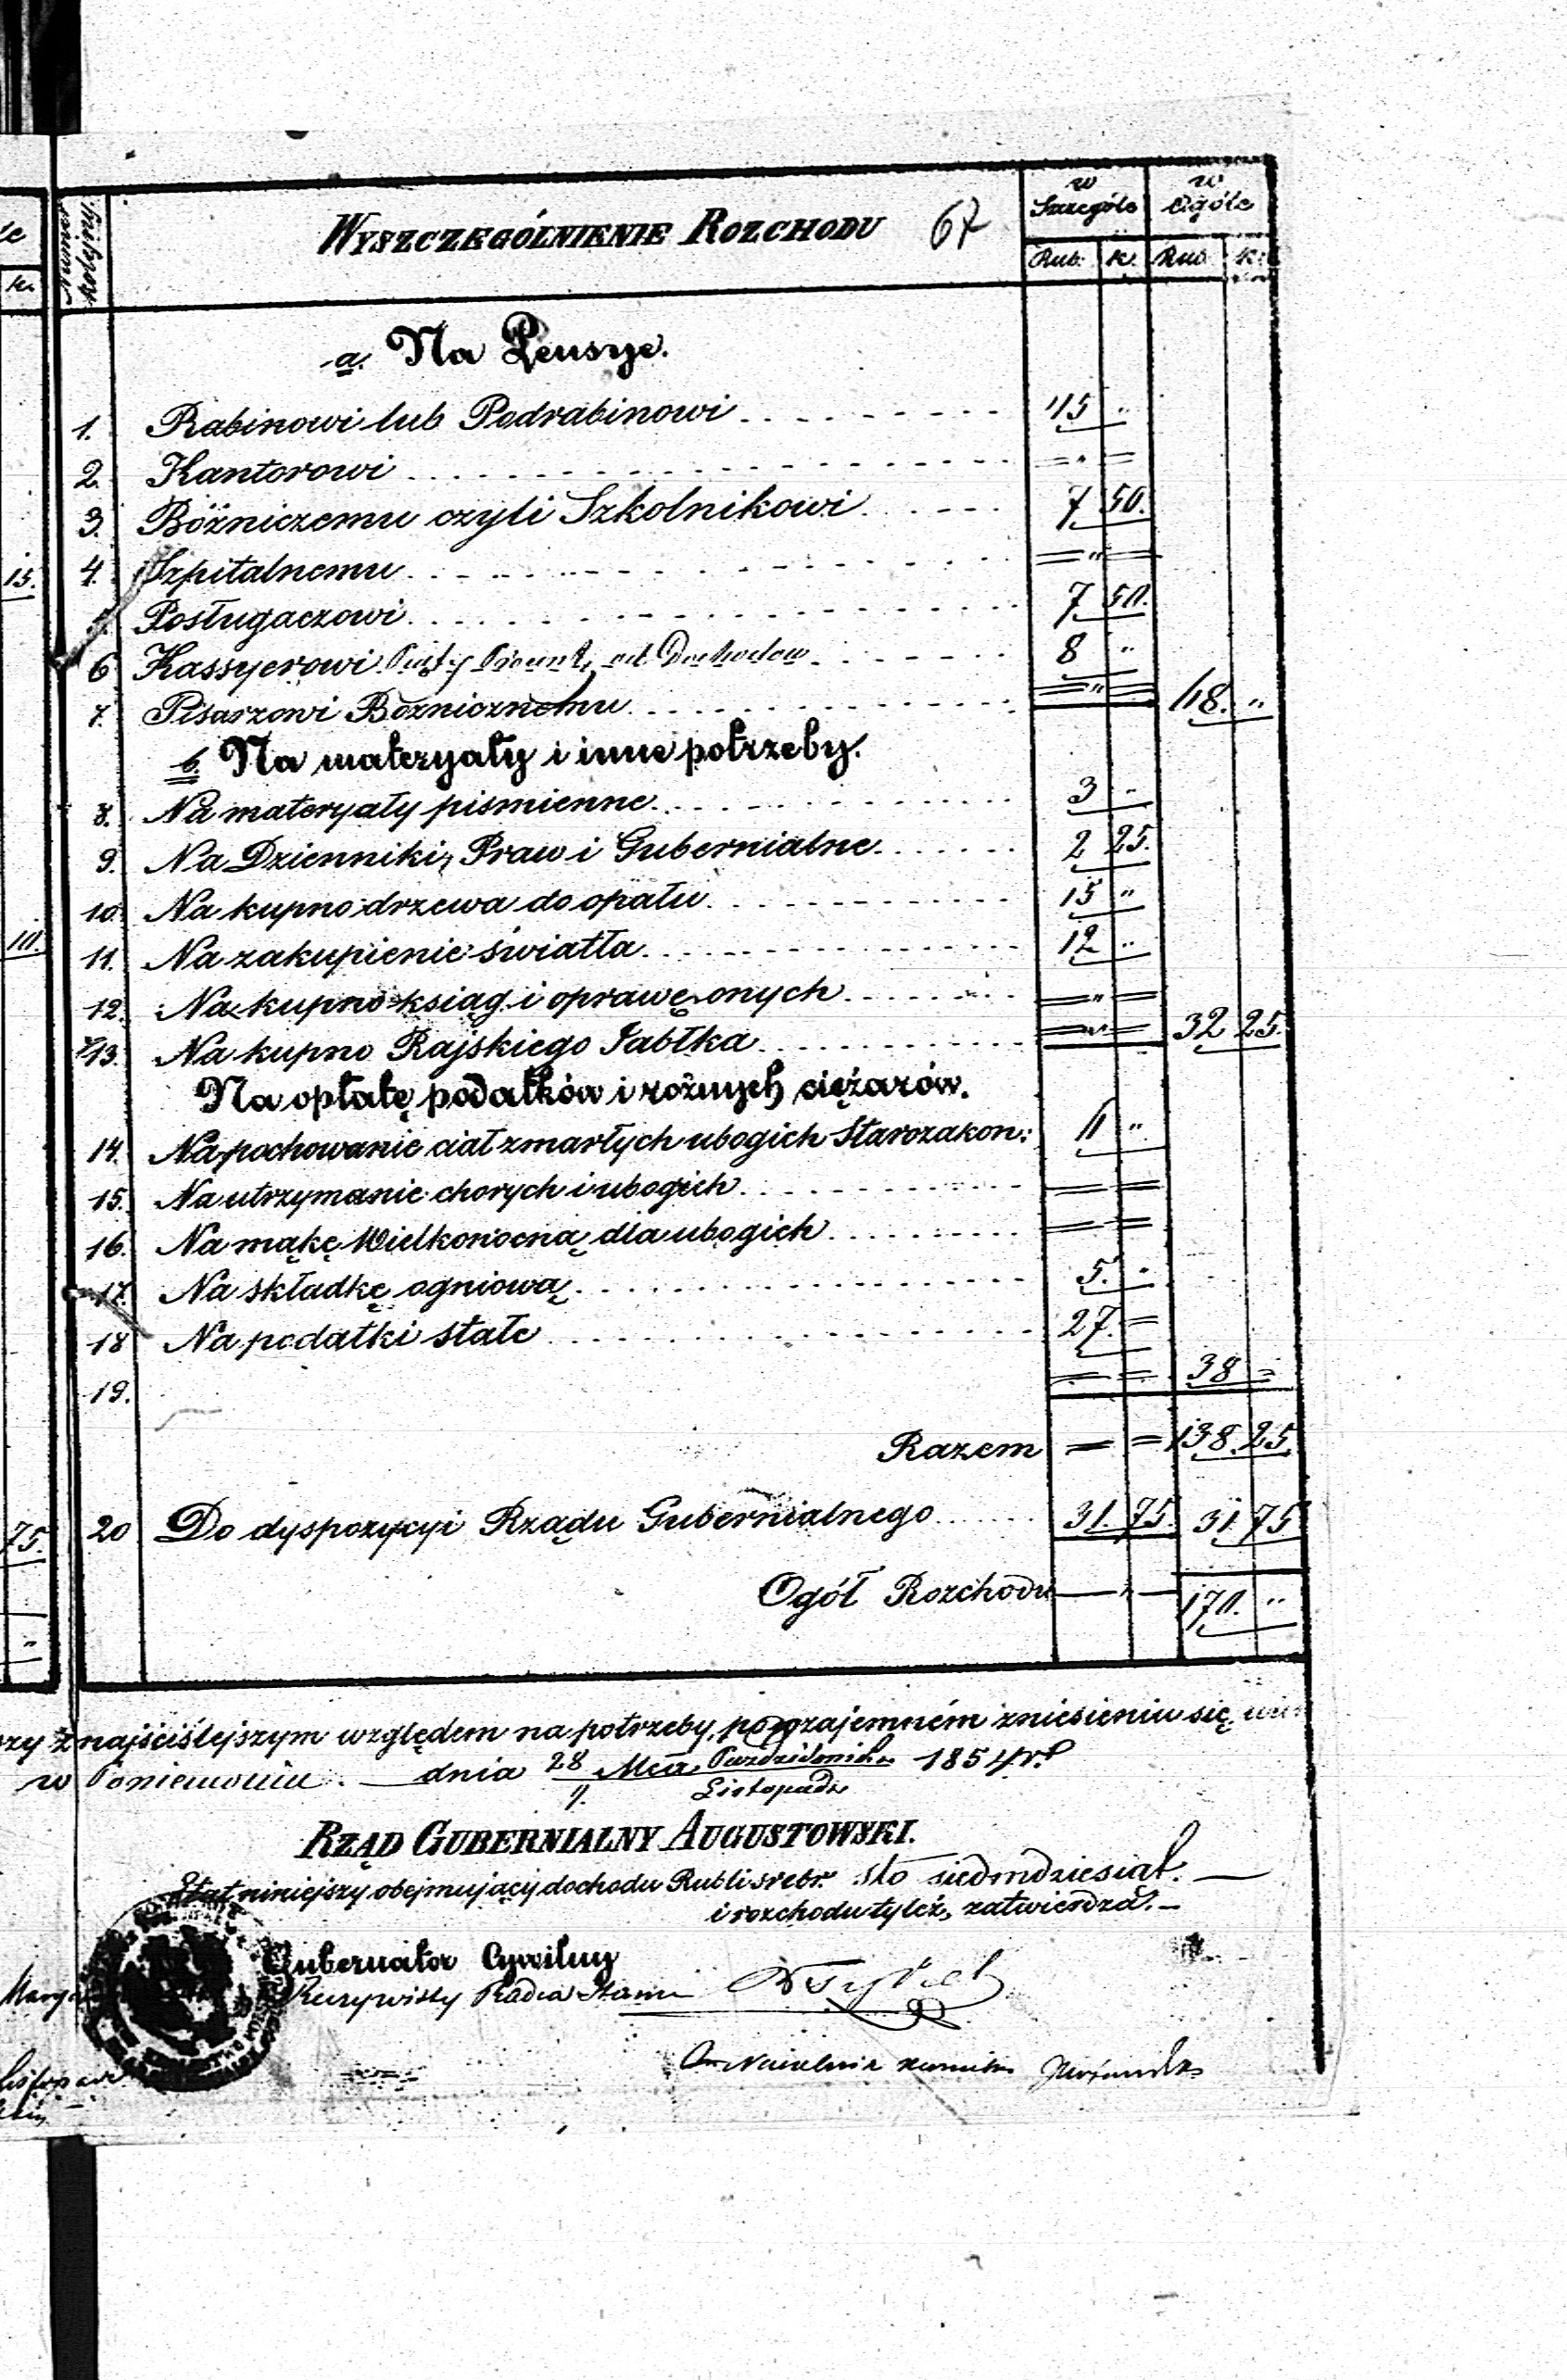 WYSZCZEGÓLNIENIE ROZCHODU 67
w Szczególe w Ogóle
Rub: K. Rub: K:
a. Na Pensye.
1. Rabinowi lub Podrabinowi 45 "
2. Kantorowi = " =
3. Bóżniczemu czyli Szkolnikowi 7 50.
4. Szpitalnemu = " =
5. Posługaczowi 7 50.
6 Kassyerowi Piąty Procent od Dochodów 8 "
7. Pisarzowi Bożnicznemu = " = 68. "
b. Na materyały i inne potrzeby.
8. Na materyały pismienne 3 "
9. Na Dzienniki, Praw i Gubernialne 2 25.
10. Na kupno drzewa do opału 15 "
11. Na zakupienie światła 12 "
12. Na kupno ksiąg i oprawę onych = " =
13. Na kupno Rajskiego Jabłka = " = 32 25.
Na opłatę podatków i rożnych ciężarów.
14. Na pochowanie ciał zmarłych ubogich Starozakon: 6 "
15. Na utrzymanie chorych i ubogich = =
16. Na mąkę Wielkonocną dla ubogich = =
17. Na składkę ogniową 5. "
18 Na podatki stałe 27. =
19. = = 38 =
Razem = = 138. 25.
20 Do dyspozycyi Rządu Gubernialnego 31. 75. 31. 75
Ogół Rozchodu — " — 170. "
najściślejszym względem na potrzeby, po wzajemném zniesieniu się
w Poniemoniu — dnia 28/9. Mca Października/Listopada 1854 r.
RZĄD GUBERNIALNY AUGUSTOWSKI.
Etat niniejszy obejmujący dochodu Rubli srebr. sto siedmdziesiąt. —
i rozchodu tyleż, zatwierdza. —
Gubernator Cywilny
Rzeczywisty Radca Stanu